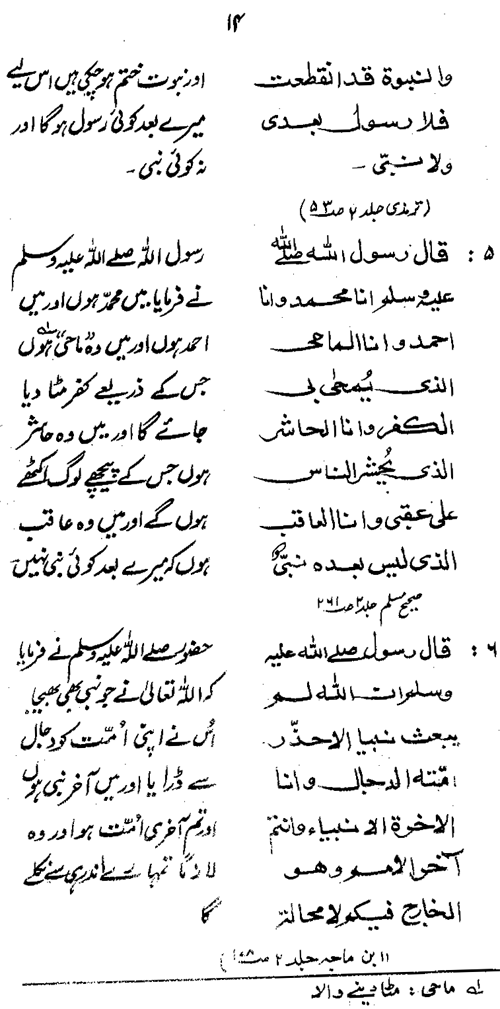 ۱۴
والنبوة قد انقطعت
فلا رسول بعدی
ولا نبتی -
(ترمذی جلد ۲ صـ ۵۳)
اور نبوت ختم ہو چکی ہیں اس لیے
میرے بعد کوئی رسول ہوگا اور
نہ کوئی نبی -
۵ : قال رسول اللہ صلے اللہ
علیہ وسلو انا محمد وانا
احمد وانا الماحی
الذی یُمحٰی بی
الکفر وانا الحاشر
الذی یُحشر الناس
علیٰ عقبی وانا العاقب
الذی لیس بعدہ نبیّ
رسول اللہ صلے اللہ علیہ وسلم
نے فرمایا میں محمدؐ ہوں اور میں
احمد ہوں اور میں وہ "ماحی" ؎۱ ہوں
جس کے ذریعے کفر مٹا دیا
جائے گا اور میں وہ حاشر
ہوں جس کے پیچھے لوگ اکٹھے
ہوں گے اور میں وہ عاقب
ہوں کہ میرے بعد کوئی نبی نہیں
صحیح مسلم جلد ۲ صـ ۲۶۱
۶ : قال رسول صلے اللہ علیہ
وسلو ات اللہ لم
یبعث نبیا الاحذّر
امّتہ الدجال وانا
الاخرۃ الانبیاء وانتم
آخر الامم وھو
الخارج فیکولا محالۃ
حضور صلے اللہ علیہ وسلم نے فرمایا
کہ اللہ تعالیٰ نے جو نبی بھی بھیجا
اُس نے اپنی اُمّت کو دجال
سے ڈرایا اور میں آخر نبی ہوں
اور تم آخری اُمّت ہو اور وہ
لازمًا تمہارے اندر ہی سے نکلے
گا
(ابن ماجہ جلد ۲ صـ)
؎۱ ماحی : مٹا دینے والا